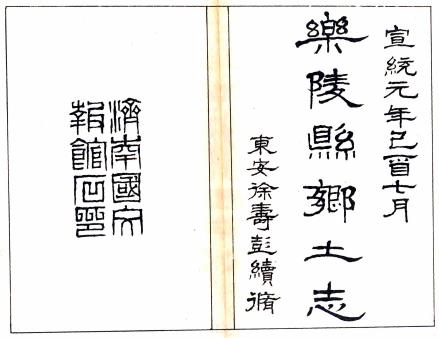 宣統元年己酉七月
樂陵縣鄉土志
東安徐壽彭續脩
濟南國文
報館石印